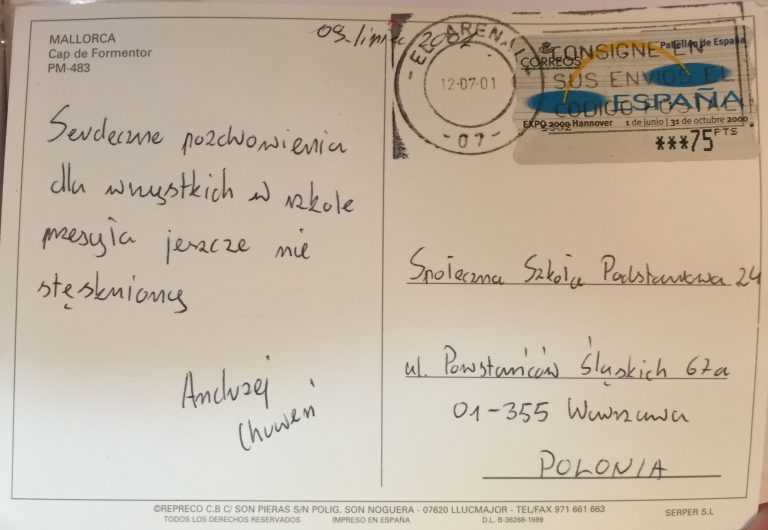 MALLORCA
Cap de Formentor
PM-483
Serdeczne pozdrowienia
dla wszystkich w szkole
przesyła jeszcze nie
stęskniony
Andrzej
09. lipiec 2001
EL ARENAL
12-07-01
-07-
CORREOS
Pabellón de España
CONSIGNE EN
SUS ENVIOS EL
CODIGO POSTAL
ESPAÑA
EXPO 2000 Hannover 1 de junio | 31 de octubre 2000
***75 PTS
Społeczna Szkoła Podstawowa 24
ul. Powstańców Śląskich 67a
01-355 Warszawa
POLONIA
©REPRECO C.B C/ SON PIERAS S/N POLIG. SON NOGUERA - 07620 LLUCMAJOR - TEL/FAX 971 661 663
TODOS LOS DERECHOS RESERVADOS IMPRESO EN ESPAÑA D.L. B-36268-1989 SERPER S.L